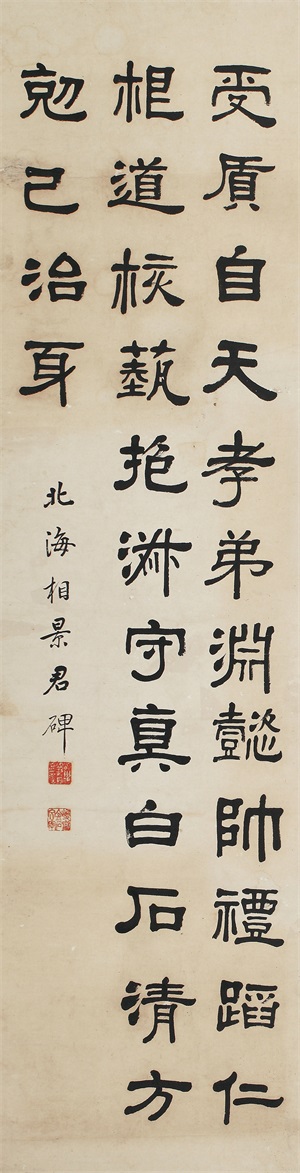 受質自天孝弟淵懿帥禮蹈仁
根道核蓺抱淑守真白石清方
剋己治身
北海相景君碑